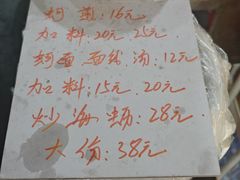 蚵煎:16元
加料20元 25元
蚵面 面线 汤:12元
加料:15元.20元
炒海蛎:28元
大份:38元